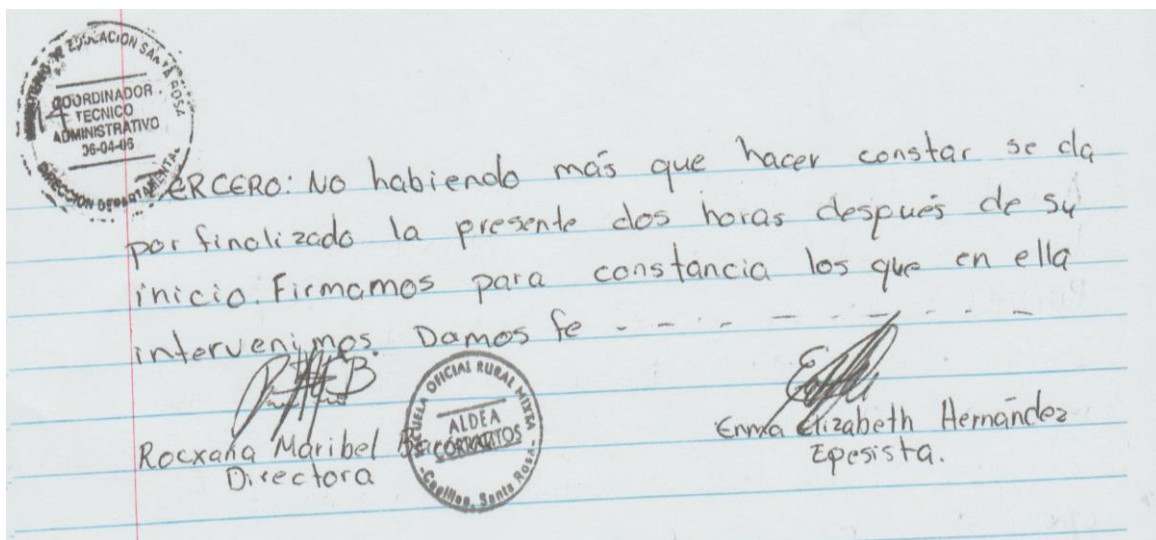 MINISTERIO DE EDUCACION SANTA ROSA
COORDINADOR
TECNICO
ADMINISTRATIVO
06-04-06
DIRECCION DEPARTAMENTAL
TERCERO: No habiendo más que hacer constar se da
por finalizado la presente dos horas después de su
inicio. Firmamos para constancia los que en ella
intervenimos. Damos fe - - - - - - - - - -
Rocxana Maribel
Directora
ESCUELA OFICIAL RURAL MIXTA
ALDEA
CORRALITOS
-Casillas, Santa Rosa-
Enma Elizabeth Hernández
Epesista.